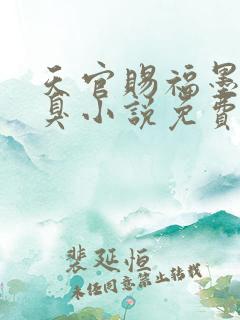 天官赐福墨
真小说免费
裴延恒
未经同意禁止转载